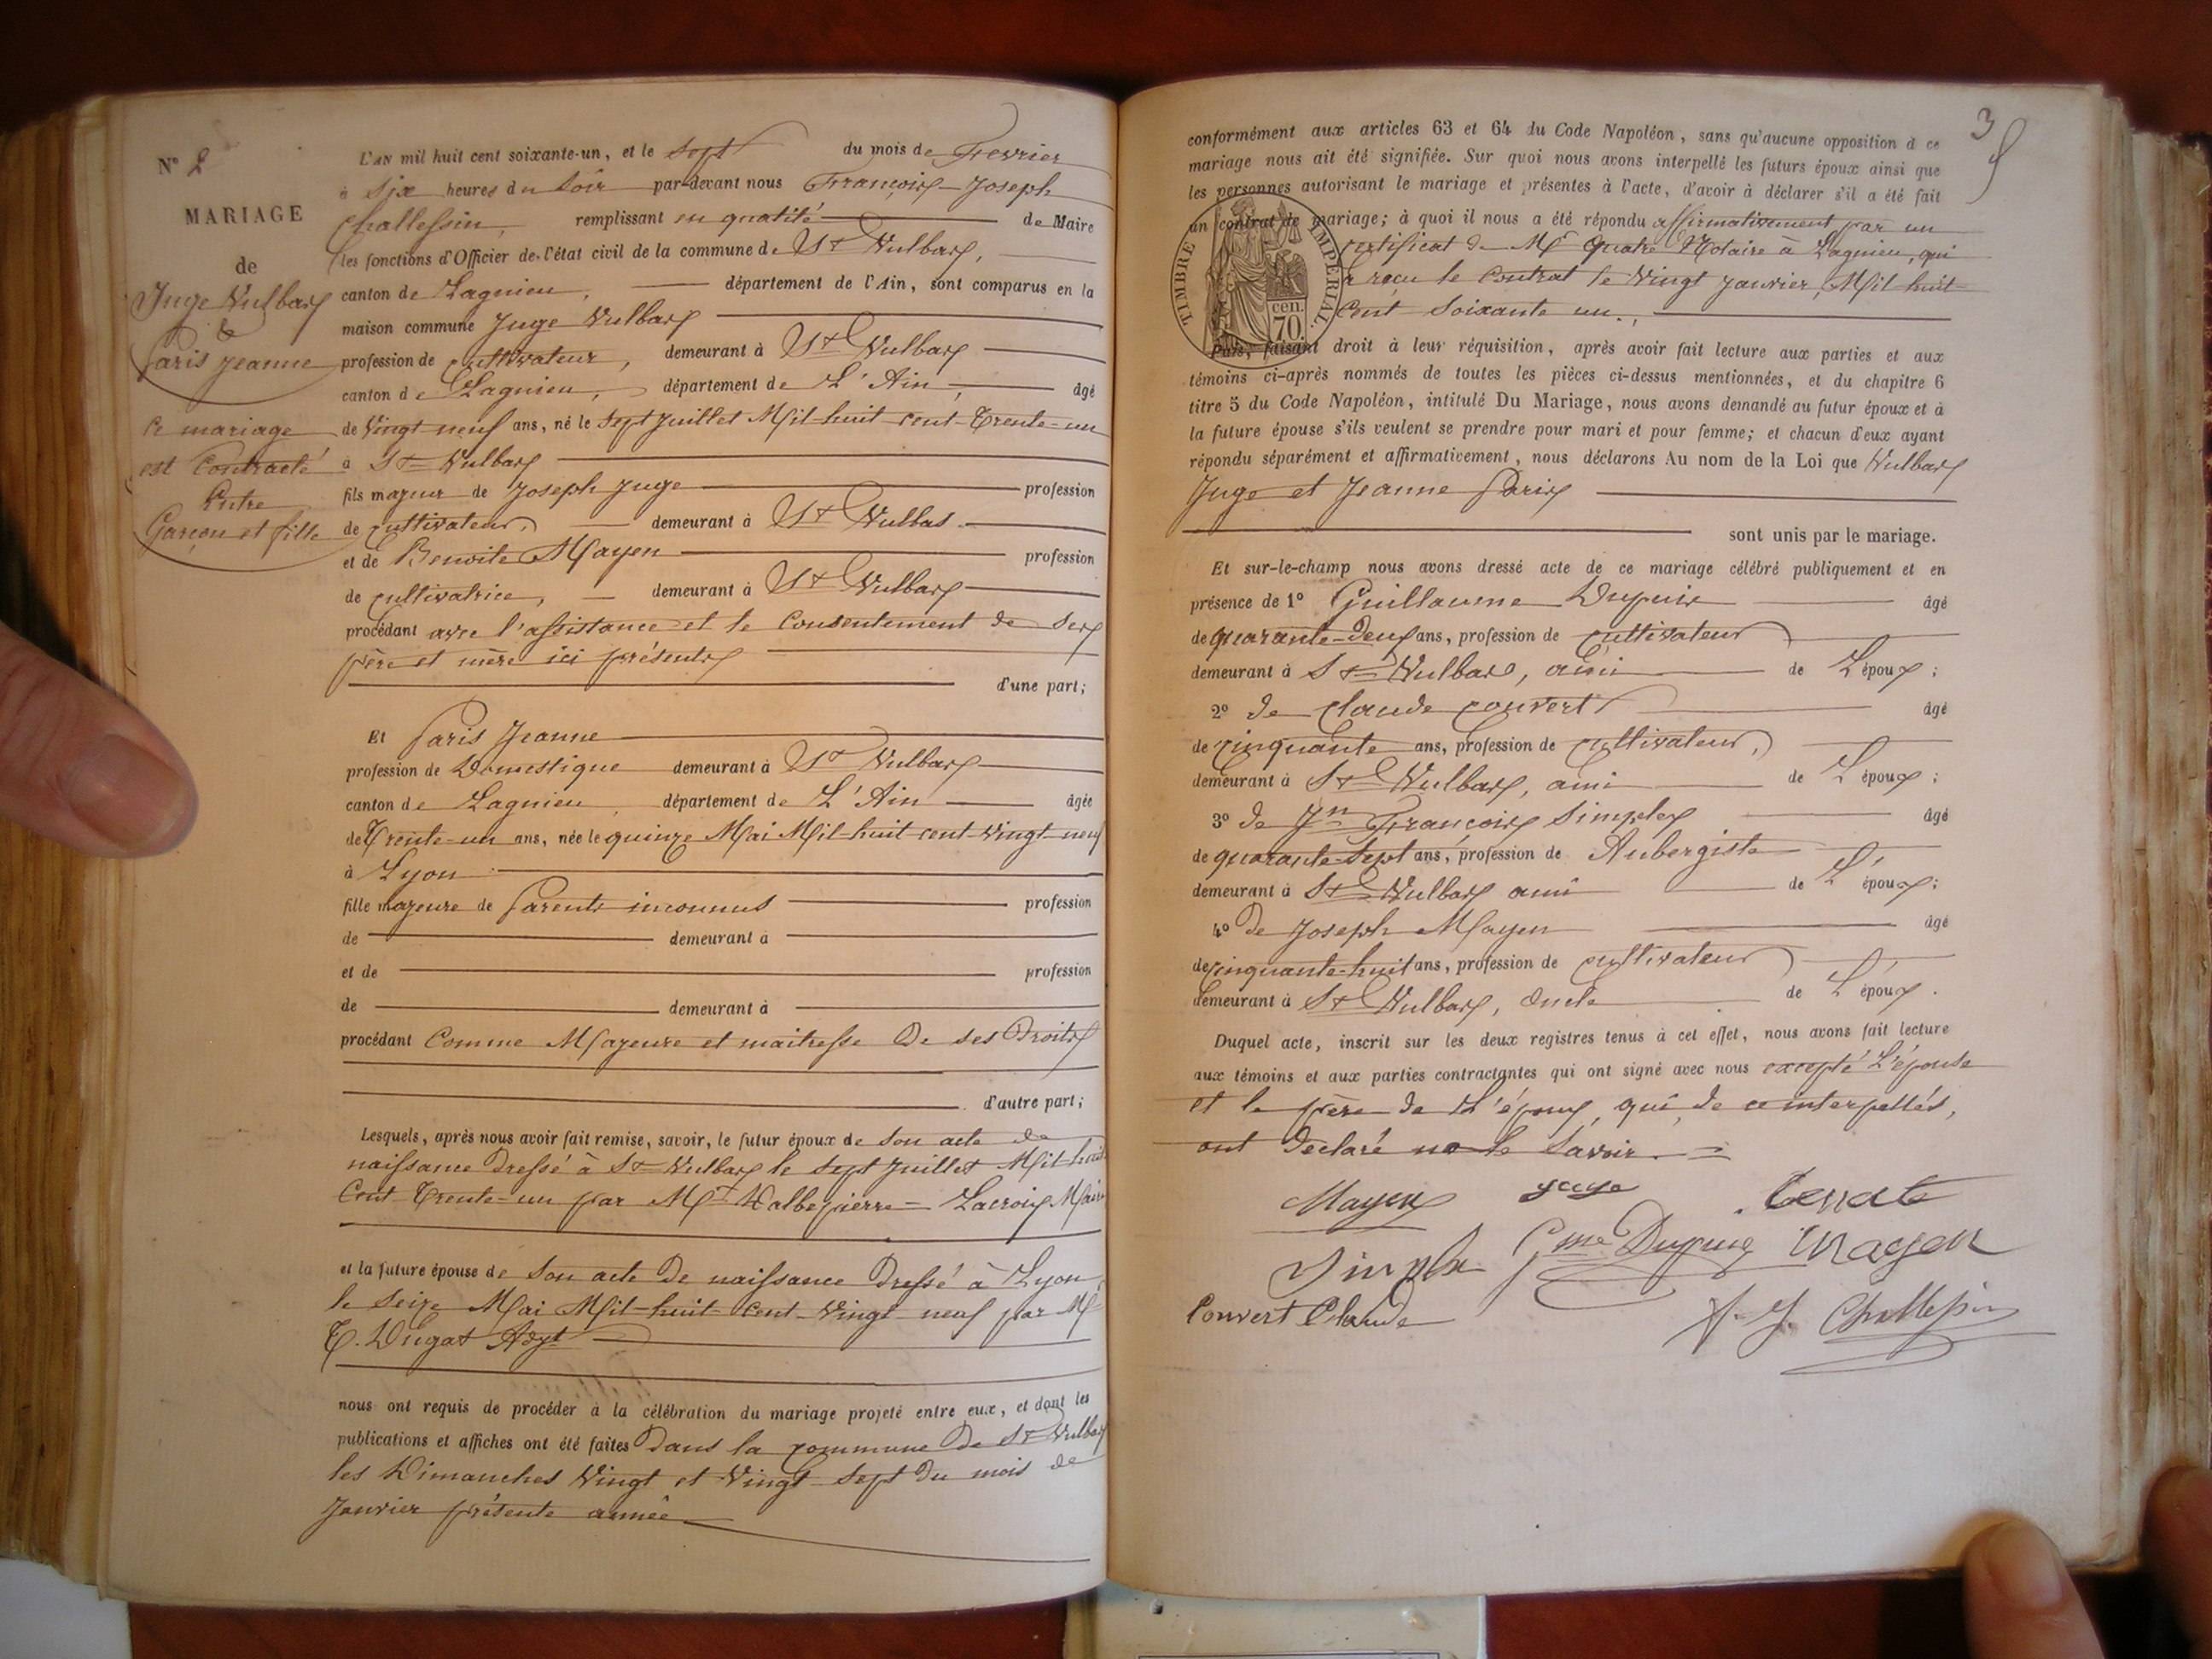 N° 2
MARIAGE
de
Juge Vulbas
&
Paris Jeanne
ce mariage
est Contracté
Entre
Garçon et fille
L'AN mil huit cent soixante-un, et le Sept du mois de Fevrier
à Six heures du Soir par-devant nous François-Joseph
Challessin, remplissant en qualité de Maire
les fonctions d'Officier de l'état civil de la commune de St Vulbas,
canton de Lagnieu, département de l'Ain, sont comparus en la
maison commune Juge Vulbas
profession de cultivateur, demeurant à St Vulbas
canton de Lagnieu, département de L'Ain, âgé
de Vingt-neuf ans, né le Sept Juillet Mil-huit-cent-Trente-un
à St Vulbas
fils majeur de Joseph Juge profession
de cultivateur, demeurant à St Vulbas
et de Benoite Mayen profession
de cultivatrice, demeurant à St Vulbas
procédant avec l'assistance et le Consentement de Ses
père et mère ici présents
d'une part;
Et Paris Jeanne
profession de Domestique demeurant à St Vulbas
canton de Lagnieu, département de L'Ain âgée
de Trente-un ans, née le quinze Mai Mil-huit-cent-Vingt-neuf
à Lyon
fille majeure de Parents inconnus profession
de demeurant à
et de profession
de demeurant à
procédant Comme Majeure et maitresse De ses Droits
d'autre part;
Lesquels, après nous avoir fait remise, savoir, le futur époux de Son acte de
naissance Dressé à St Vulbas le Sept Juillet Mil-huit
Cent-Trente-un par Mr Dalbepierre=Lacroix Maire
et la future épouse de Son acte De naissance Dressé à Lyon
le Seize Mai Mil-huit-Cent-Vingt-neuf par Mr
T. Dugat Adjt
nous ont requis de procéder à la célébration du mariage projeté entre eux, et dont les
publications et affiches ont été faites Dans la commune De St Vulbas
les Dimanches Vingt et Vingt-Sept Du mois de
Janvier présente année
3
conformément aux articles 63 et 64 du Code Napoléon, sans qu'aucune opposition à ce
mariage nous ait été signifiée. Sur quoi nous avons interpellé les futurs époux ainsi que
les personnes autorisant le mariage et présentes à l'acte, d'avoir à déclarer s'il a été fait
un contrat de mariage; à quoi il nous a été répondu affirmativement par un
certificat de Me quatre Notaire à Lagnieu, qui
a reçu le Contrat le Vingt Janvier, Mil-huit-
Cent-Soixante un.
TIMBRE IMPÉRIAL.
70 cen.
Puis, faisant droit à leur réquisition, après avoir fait lecture aux parties et aux
témoins ci-après nommés de toutes les pièces ci-dessus mentionnées, et du chapitre 6
titre 5 du Code Napoléon, intitulé Du Mariage, nous avons demandé au futur époux et à
la future épouse s'ils veulent se prendre pour mari et pour femme; et chacun d'eux ayant
répondu séparément et affirmativement, nous déclarons Au nom de la Loi que Vulbas
Juge et Jeanne Paris
sont unis par le mariage.
Et sur-le-champ nous avons dressé acte de ce mariage célébré publiquement et en
présence de 1° Guillaume Dupuis âgé
de quarante-Deux ans, profession de cultivateur
demeurant à St Vulbas, ami de L'époux;
2° de Claude Couvert âgé
de cinquante ans, profession de cultivateur,
demeurant à St Vulbas, ami de L'époux;
3° de Jn François Simplex âgé
de quarante-Sept ans, profession de Aubergiste
demeurant à St Vulbas ami de L'époux;
4° De Joseph Mayen âgé
de cinquante-huit ans, profession de cultivateur
demeurant à St Vulbas, Oncle de L'époux.
Duquel acte, inscrit sur les deux registres tenus à cet effet, nous avons fait lecture
aux témoins et aux parties contractantes qui ont signé avec nous excepté L'épouse
et le père de L'époux, qui, de ce interpellés,
ont Déclaré ne le Savoir.
Mayen juge
Simplex Gme Dupuis Mayen
Couvert Claude F. J. Challessin